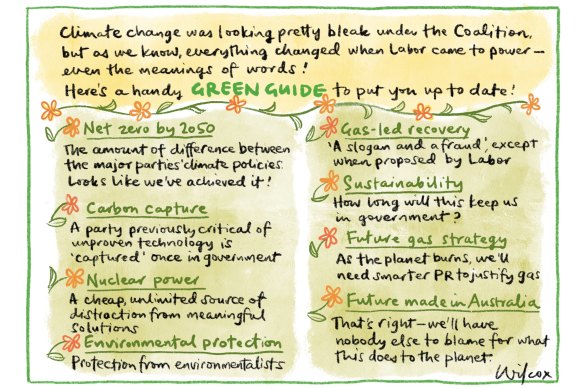 Climate change was looking pretty bleak under the Coalition,
but as we know, everything changed when Labor came to power—
even the meanings of words!
Here's a handy GREEN GUIDE to put you up to date!
Net zero by 2050
The amount of difference between
the major parties' climate policies.
Looks like we've achieved it!
Carbon capture
A party previously critical of
unproven technology is
'captured' once in government
Nuclear power
A cheap, unlimited source of
distraction from meaningful
solutions
Environmental protection
Protection from environmentalists
Gas-led recovery
'A slogan and a fraud', except
when proposed by Labor
Sustainability
How long will this keep us
in government?
Future gas strategy
As the planet burns, we'll
need smarter PR to justify gas
Future made in Australia
That's right—we'll have
nobody else to blame for what
this does to the planet.
Wilcox